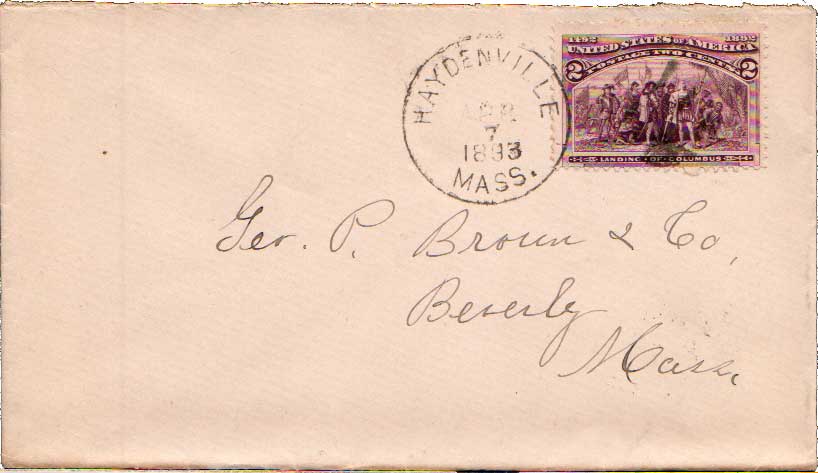 HAYDENVILLE
APR
7
1893
MASS.
1492 1892
UNITED STATES OF AMERICA
POSTAGE TWO CENTS
2 2
LANDING · OF · COLUMBUS
Geo. P. Brown & Co,
Beverly
Mass,